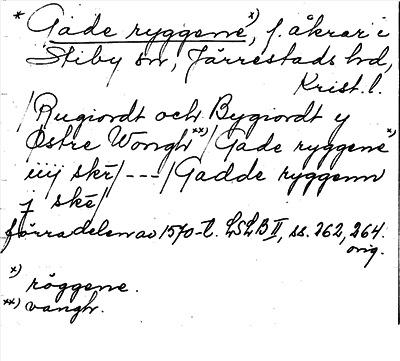 * Gade ryggene*), f. åkrar i
Stiby sn, Järrestads hd,
Krist. l.
/Rugiordt och Bygiordt y
Østre Wongh**)/Gade ryggene*)
iiij skr/---/Gadde ryggenn
j ske/
förra delen av 1570-t. LSLB II, ss. 262, 264.
orig.
*) röggene.
**) vangh.